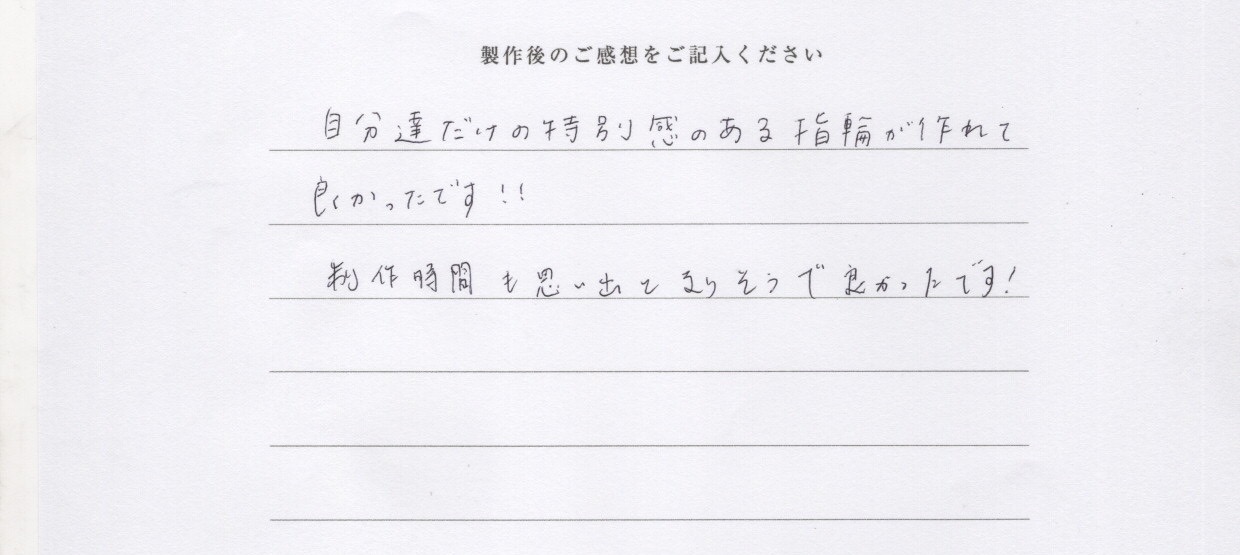 製作後のご感想をご記入ください
自分達だけの特別感のある指輪が作れて
良かったです!!
制作時間も思い出となりそうで良かったです!